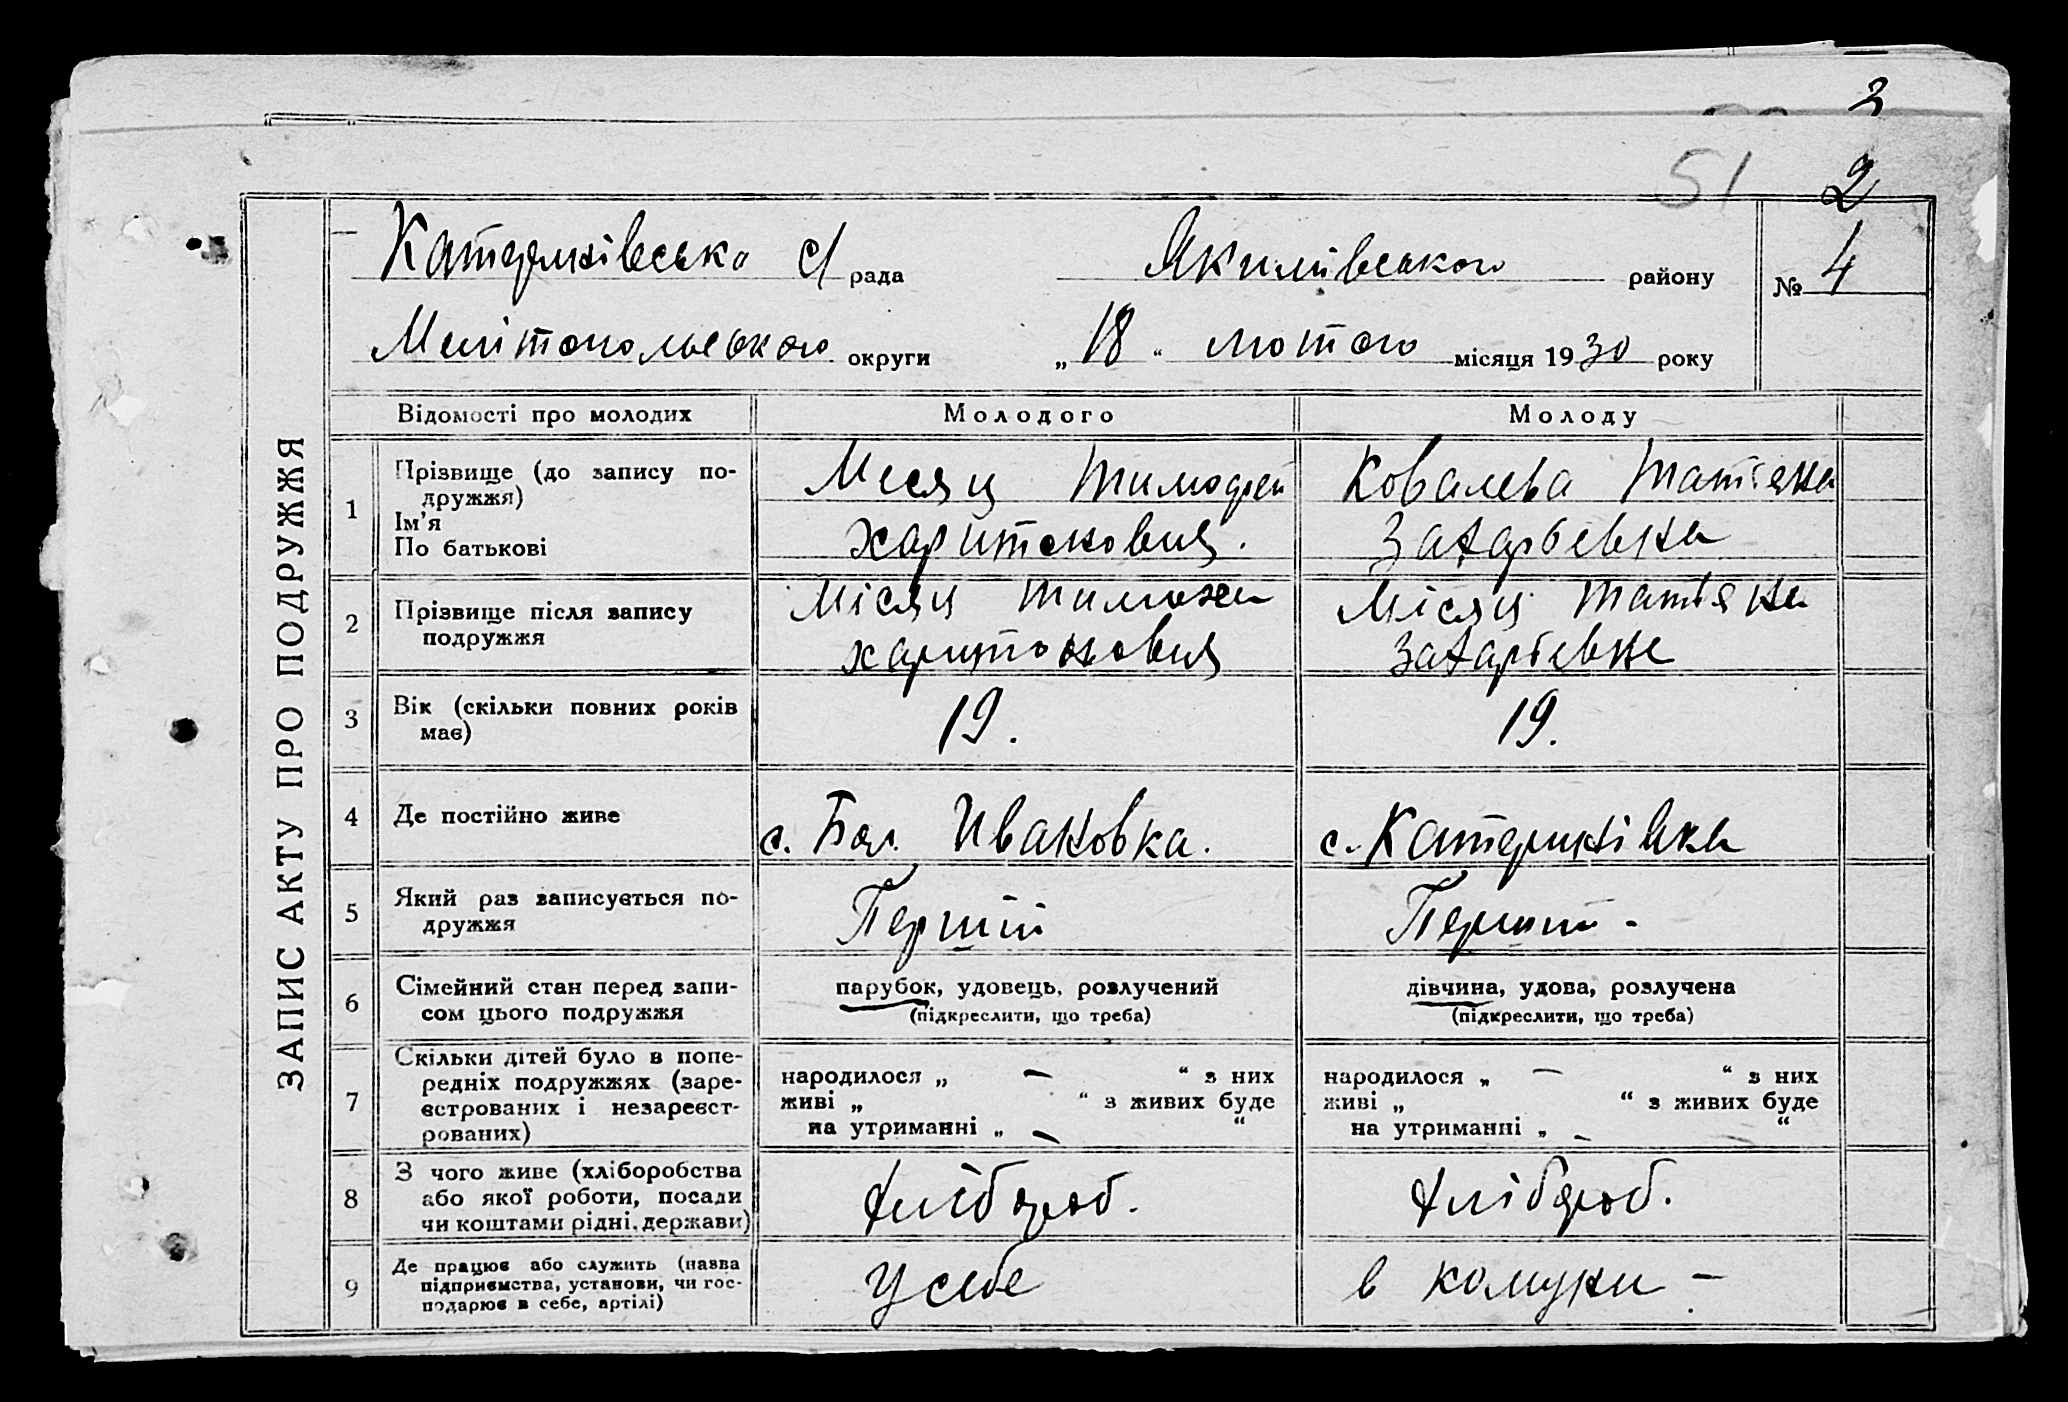 3
51
2
ЗАПИС АКТУ ПРО ПОДРУЖЖЯ
Катеринівська с/рада Якимівського району № 4
Мелітопольського округи „18“ лютого місяця 1930 року
Відомості про молодих Молодого Молоду
1 Прізвище (до запису подружжя) Месяц Тимофей Ковалева Татіяна
Ім'я
По батькові Харитонович. Захарьевна
2 Прізвище після запису Місяц Тимофей Місяц Татіяна
подружжя Харитонович Захарьевна
3 Вік (скільки повних років 19. 19.
має)
4 Де постійно живе с. Бол. Ивановка. с. Катеринівка
5 Який раз записується по- Перший Перший -
дружжя
6 Сімейний стан перед запи- парубок, удовець, розлучений дівчина, удова, розлучена
сом цього подружжя (підкреслити, що треба) (підкреслити, що треба)
7 Скільки дітей було в попе-
редніх подружжях (заре- народилося „ — “ з них народилося „ — “ з них
єстрованих і незареєст- живі „ “ з живих буде живі „ “ з живих буде
рованих) на утриманні „ — “ на утриманні „ — “
8 З чого живе (хліборобства
або якої роботи, посади хлібороб. хлібороб.
чи коштами рідні, держави)
9 Де працює або служить (назва
підприємства, установи, чи гос- У себе в комуни -
подарює в себе, артілі)